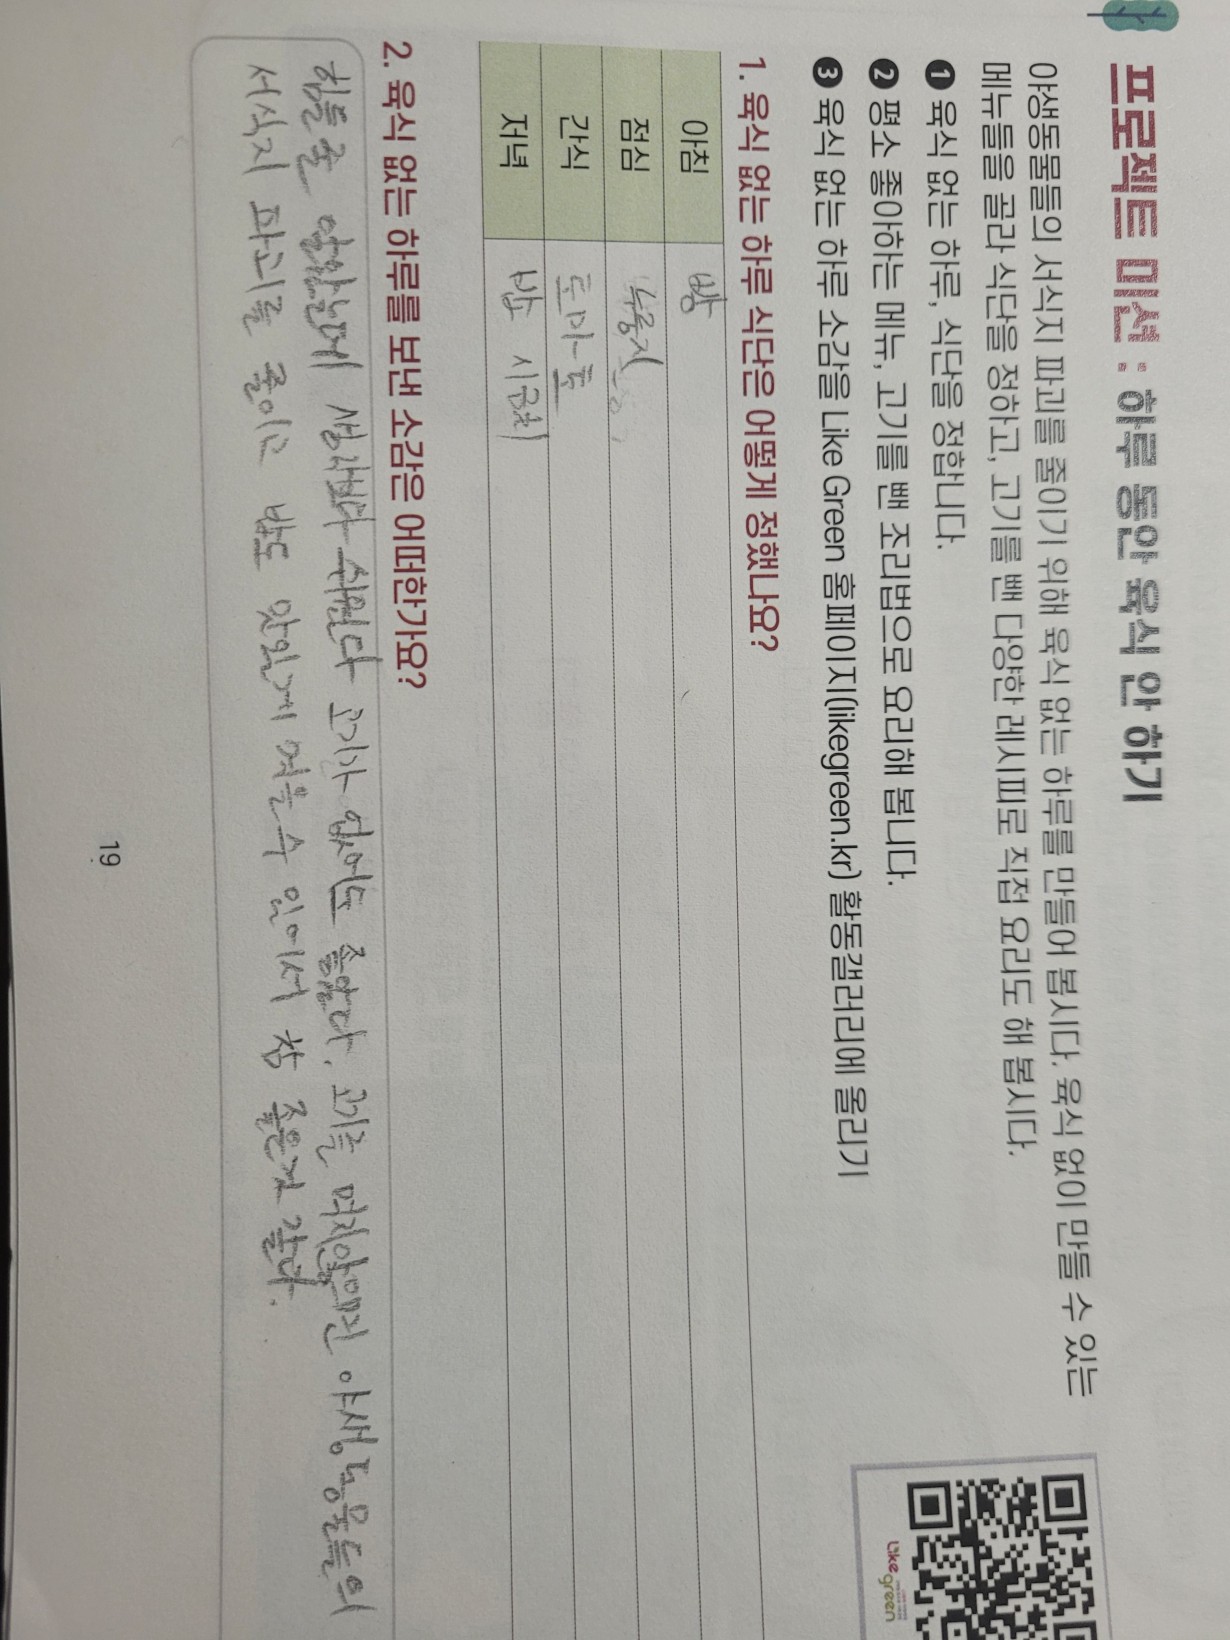 프로젝트 미션 : 하루 동안 육식 안 하기
야생동물들의 서식지 파괴를 줄이기 위해 육식 없는 하루를 만들어 봅시다. 육식 없이 만들 수 있는
메뉴들을 골라 식단을 정하고, 고기를 뺀 다양한 레시피로 직접 요리도 해 봅시다.
❶ 육식 없는 하루, 식단을 정합니다.
❷ 평소 좋아하는 메뉴, 고기를 뺀 조리법으로 요리해 봅니다.
❸ 육식 없는 하루 소감을 Like Green 홈페이지(likegreen.kr) 활동갤러리에 올리기
Like green
1. 육식 없는 하루 식단은 어떻게 정했나요?
아침 빵
점심 누룽지
간식 토마토
저녁 밥 시금치
2. 육식 없는 하루를 보낸 소감은 어떠한가요?
힘들줄 알았는데 생각보다 쉬웠다 고기가 없어도 좋았다. 고기를 먹지않으면 야생동물들의
서식지 파괴를 줄이고 밥도 맛있게 먹을 수 있어서 참 좋은것 같다.
19